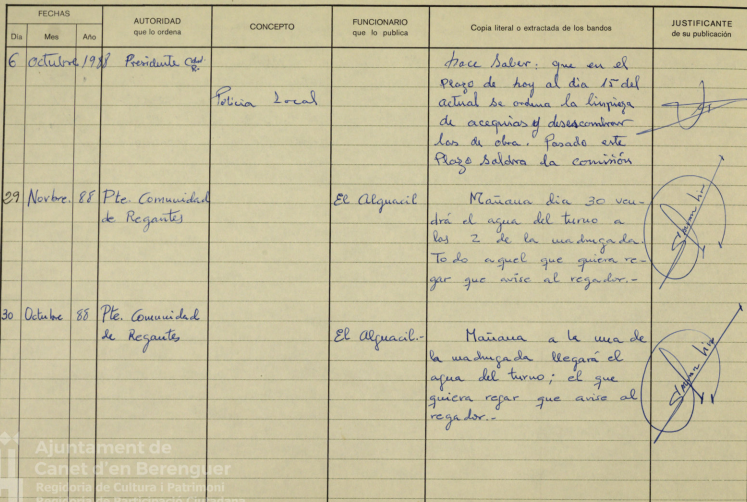 FECHAS
AUTORIDAD
que lo ordena
CONCEPTO
FUNCIONARIO
que lo publica
Copia literal o extractada de los bandos
JUSTIFICANTE
de su publicación
Día Mes Año
6 Octubre 1988 Presidente
Policia Local
hace Saber: que en el
Plazo de hoy al dia 15 del
actual se ordena la limpieza
de acequias y desescombrar
las de obra. Pasado este
Plazo Saldra la comisión
29 Novbre. 88 Pte. Comunidad
de Regantes
El Alguacil
Mañana dia 30 ven-
drá el agua del turno a
las 2 de la madrugada.
Todo aquel que quiera re-
gar que avise al regador.-
30 Octubre 88 Pte. Comunidad
de Regantes
El Alguacil.-
Mañana a la una de
la madrugada llegará el
agua del turno; el que
quiera regar que avise al
regador.-
Ajuntament de
Canet d'en Berenguer
Regidoria de Cultura i Patrimoni
Regidoria de Participació Ciutadana